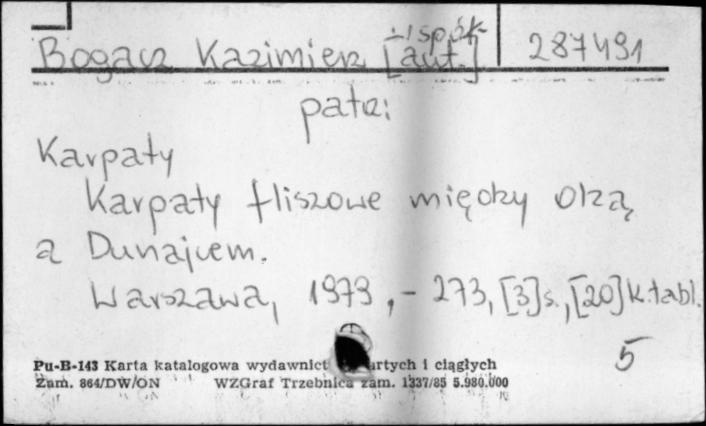 Bogacz Kazimierz [i współ-
aut.] 287491
patrz:
Karpaty
Karpaty fliszowe między Olzą
a Dunajcem.
Warszawa, 1979, - 273, [3] s., [20] k. tabl.
5
Pu-B-143 Karta katalogowa wydawnict rtych i ciągłych
Zam. 864/DW/ON WZGraf Trzebnica zam. 1337/85 5.980.000